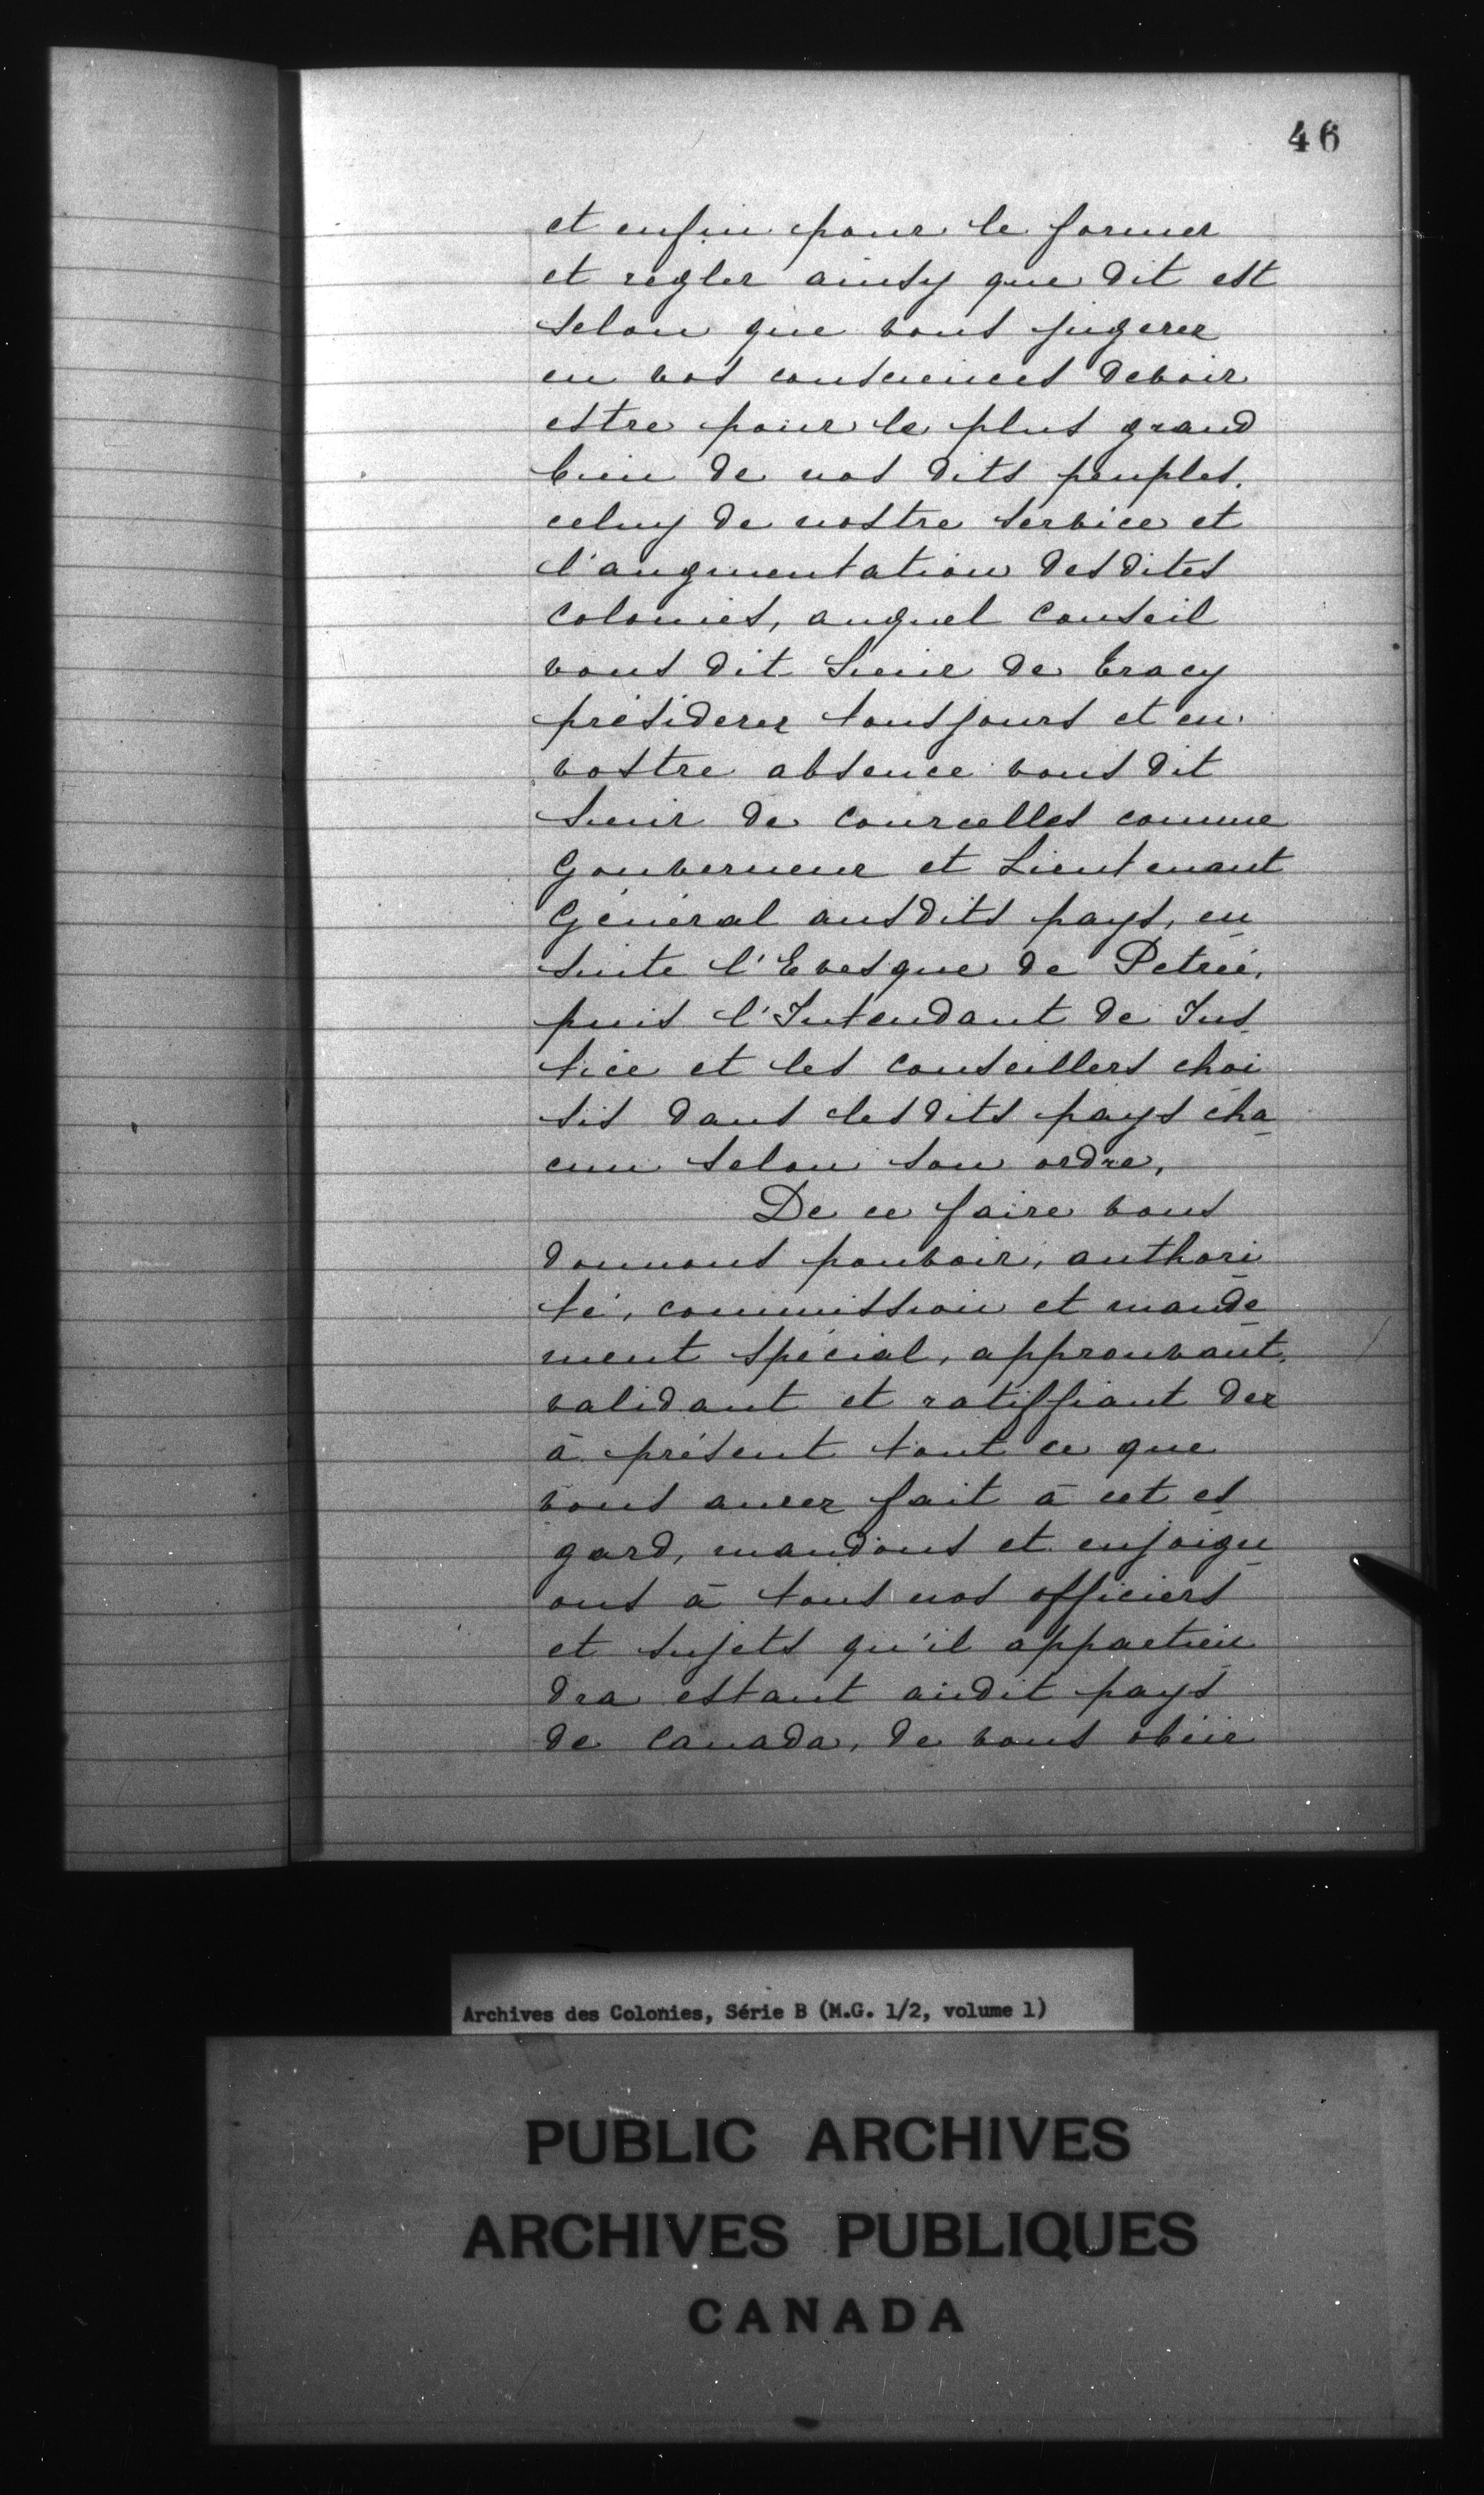 46
et enfin pour le former
et regler ainsy que dit est
selon que vous jugerez
en vos consciences devoir
estre pour le plus grand
bien de nos dits peuples,
celuy de nostre service et
l'augmentation desdites
colonies, auquel Conseil
vous dit Sieur de Tracy
présiderez tousjours et en
vostre absence vous dit
Sieur de Courcelles comme
Gouverneur et Lieutenant
Général ausdits pays, en
suite l'Evesque de Petrée,
puis l'Intendant de Jus
tice et les Conseillers choi
sis dans lesdits pays cha
cun selon son ordre,
De ce faire vous
donnons pouvoir, authori
té, commission et mande
ment spécial, approuvant,
validant et ratiffiant dez
à présent tout ce que
vous aurez fait à cet es
gard, mandons et enjoign
ons à tous nos officiers
et sujets qu'il appartien
dra estant audit pays
de Canada, de vous obéir
Archives des Colonies, Série B (M.G. 1/2, volume 1)
PUBLIC ARCHIVES
ARCHIVES PUBLIQUES
CANADA